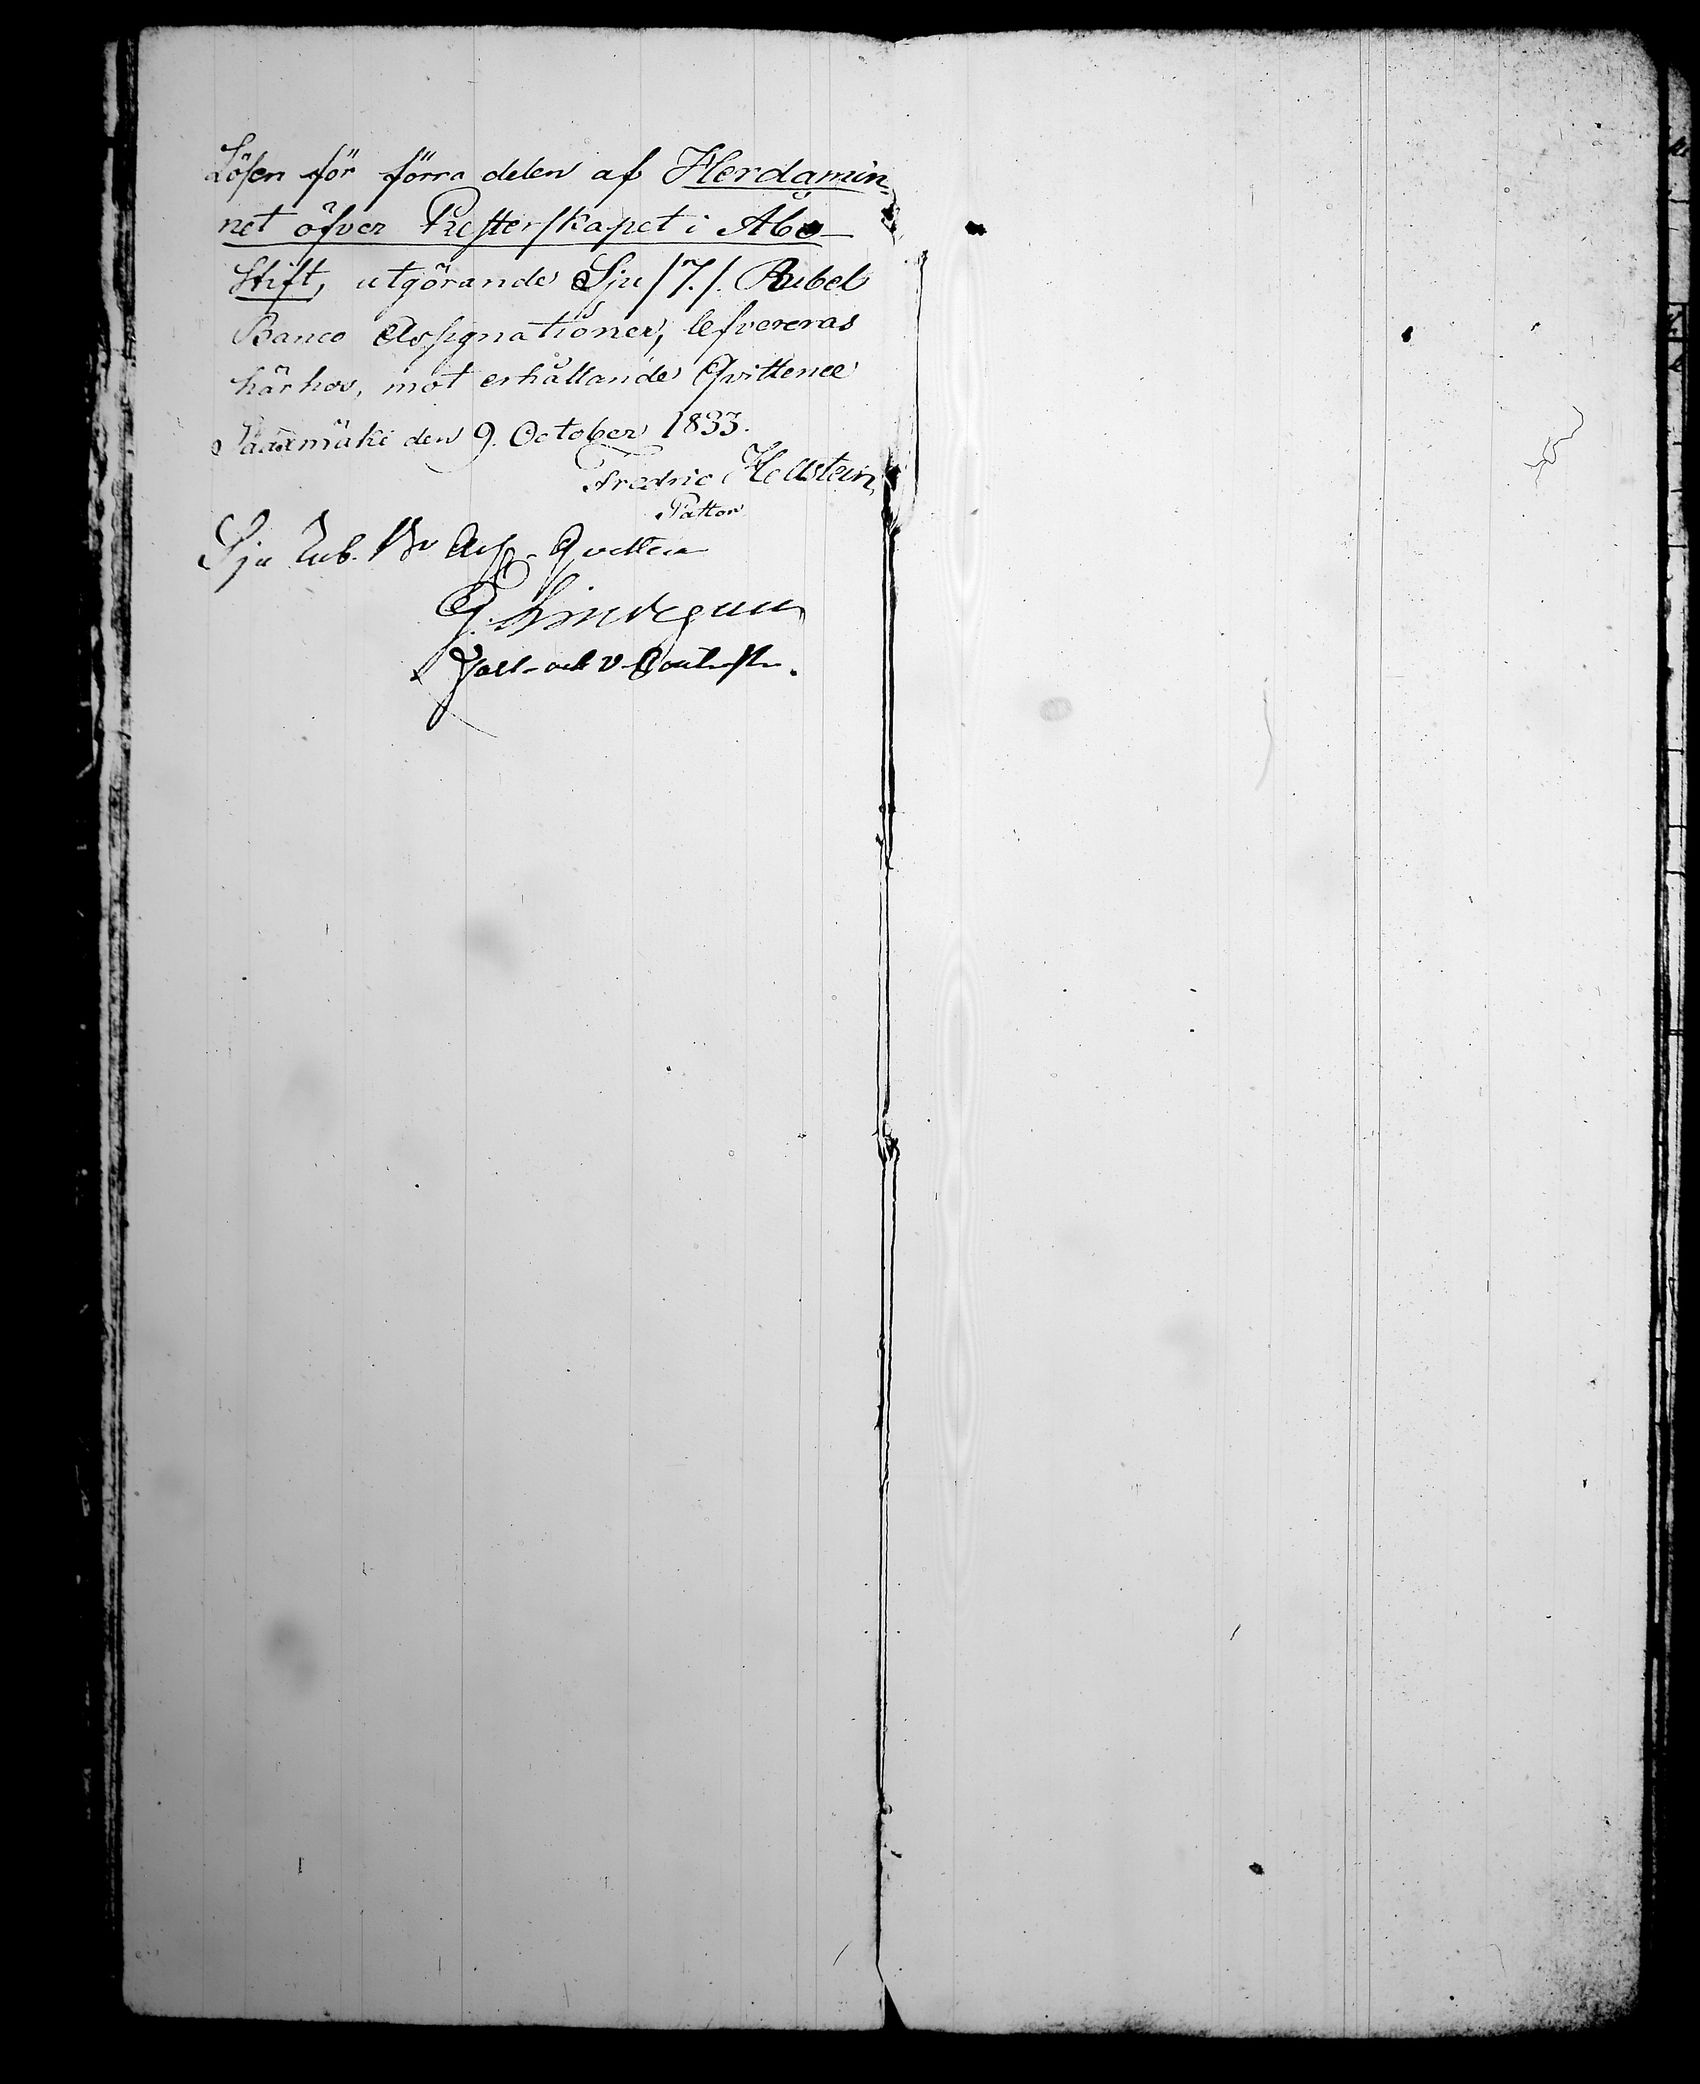 Lösen för förra delen af Herdamin-
net öfver Presterskapet i Åbo
Stift, utgörande Sju /7./. Rubel
Banco Assignationer, lefvereras
härhos, mot erhållande Qvittence
Sääxmäki den 9. October 1833.
Fredric Hellstein
Pastor
Sju Rub. Bo Ass. Qvitteras
G.